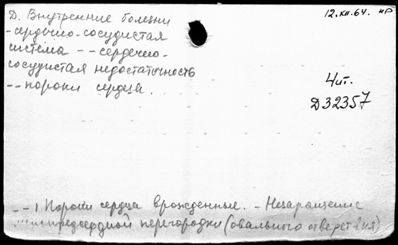 Д. Внутренние болезни
12.XII.64. НР
- сердечно-сосудистая
система -- сердечно-
сосудистая недостаточность
-- пороки сердца.
4ит.
Д32357
-- 1 Пороки сердца врожденные. - Незаращение
межпредсердной перегородки (овального отверстия)